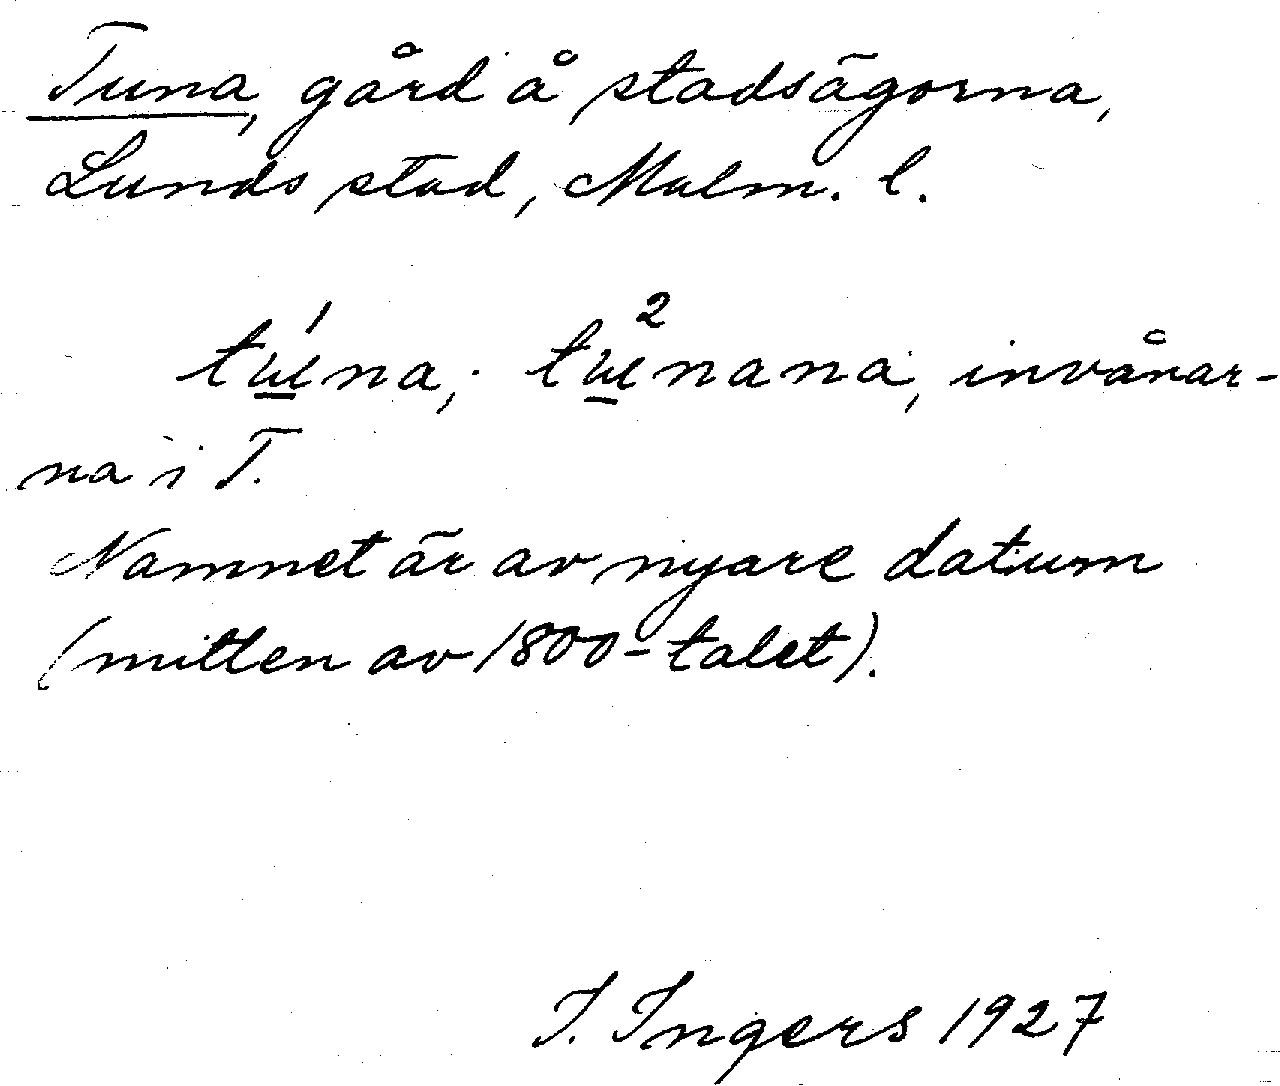 Tuna, gård å stadsägorna,
Lunds stad, Malm. l.
tú̲na; tu̲²nana, invånar-
na i T.
Namnet är av nyare datum
(mitten av 1800-talet).
I. Ingers 1927